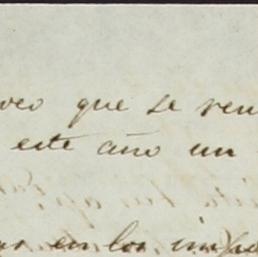 veo que se ven
este año un
en los